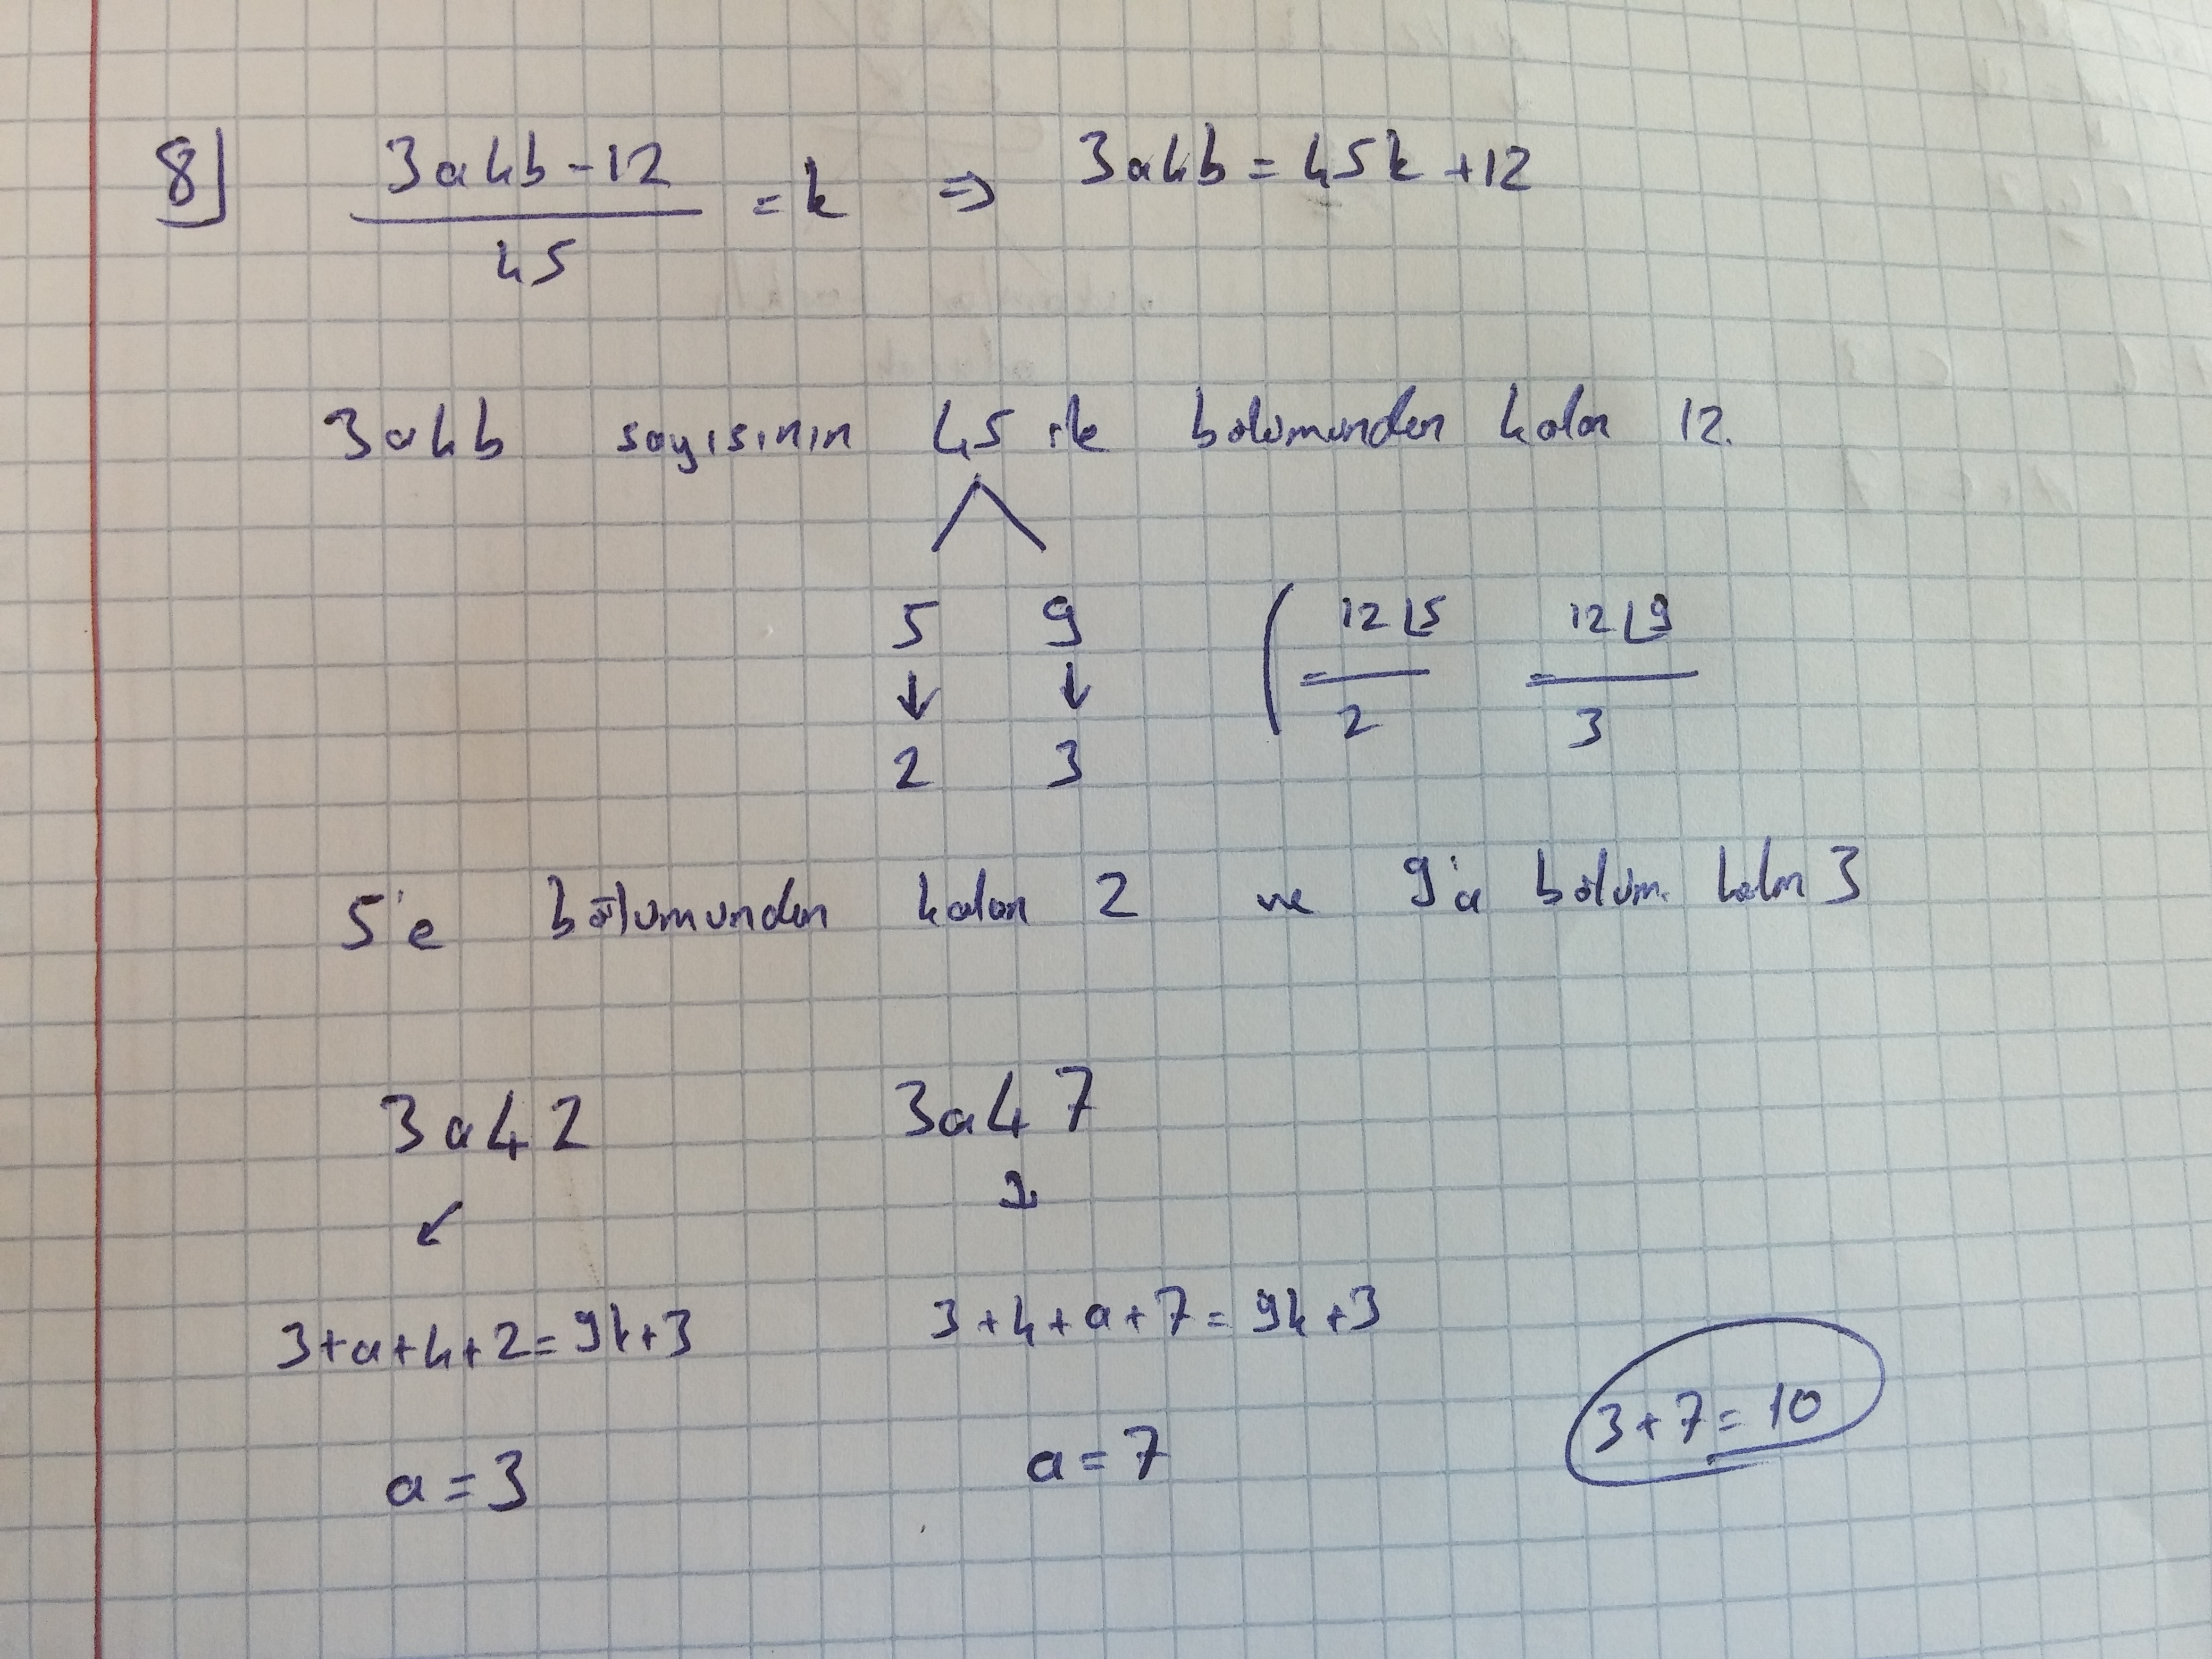 8] 3a4b-12 / 45 = k ⇒ 3a4b = 45k + 12
3a4b sayısının 45 ile bolumunden kalan 12.
5 9 ( 12 ⌊5 12 ⌊9
↓ ↓ - 2 - 3
2 3
5'e bölumunden kalan 2 ve 9'a bölüm. kalan 3
3a42 3a47
↙ ↓
3+a+4+2=9k+3 3+4+a+7=9k+3
a=3 a=7 3+7=10